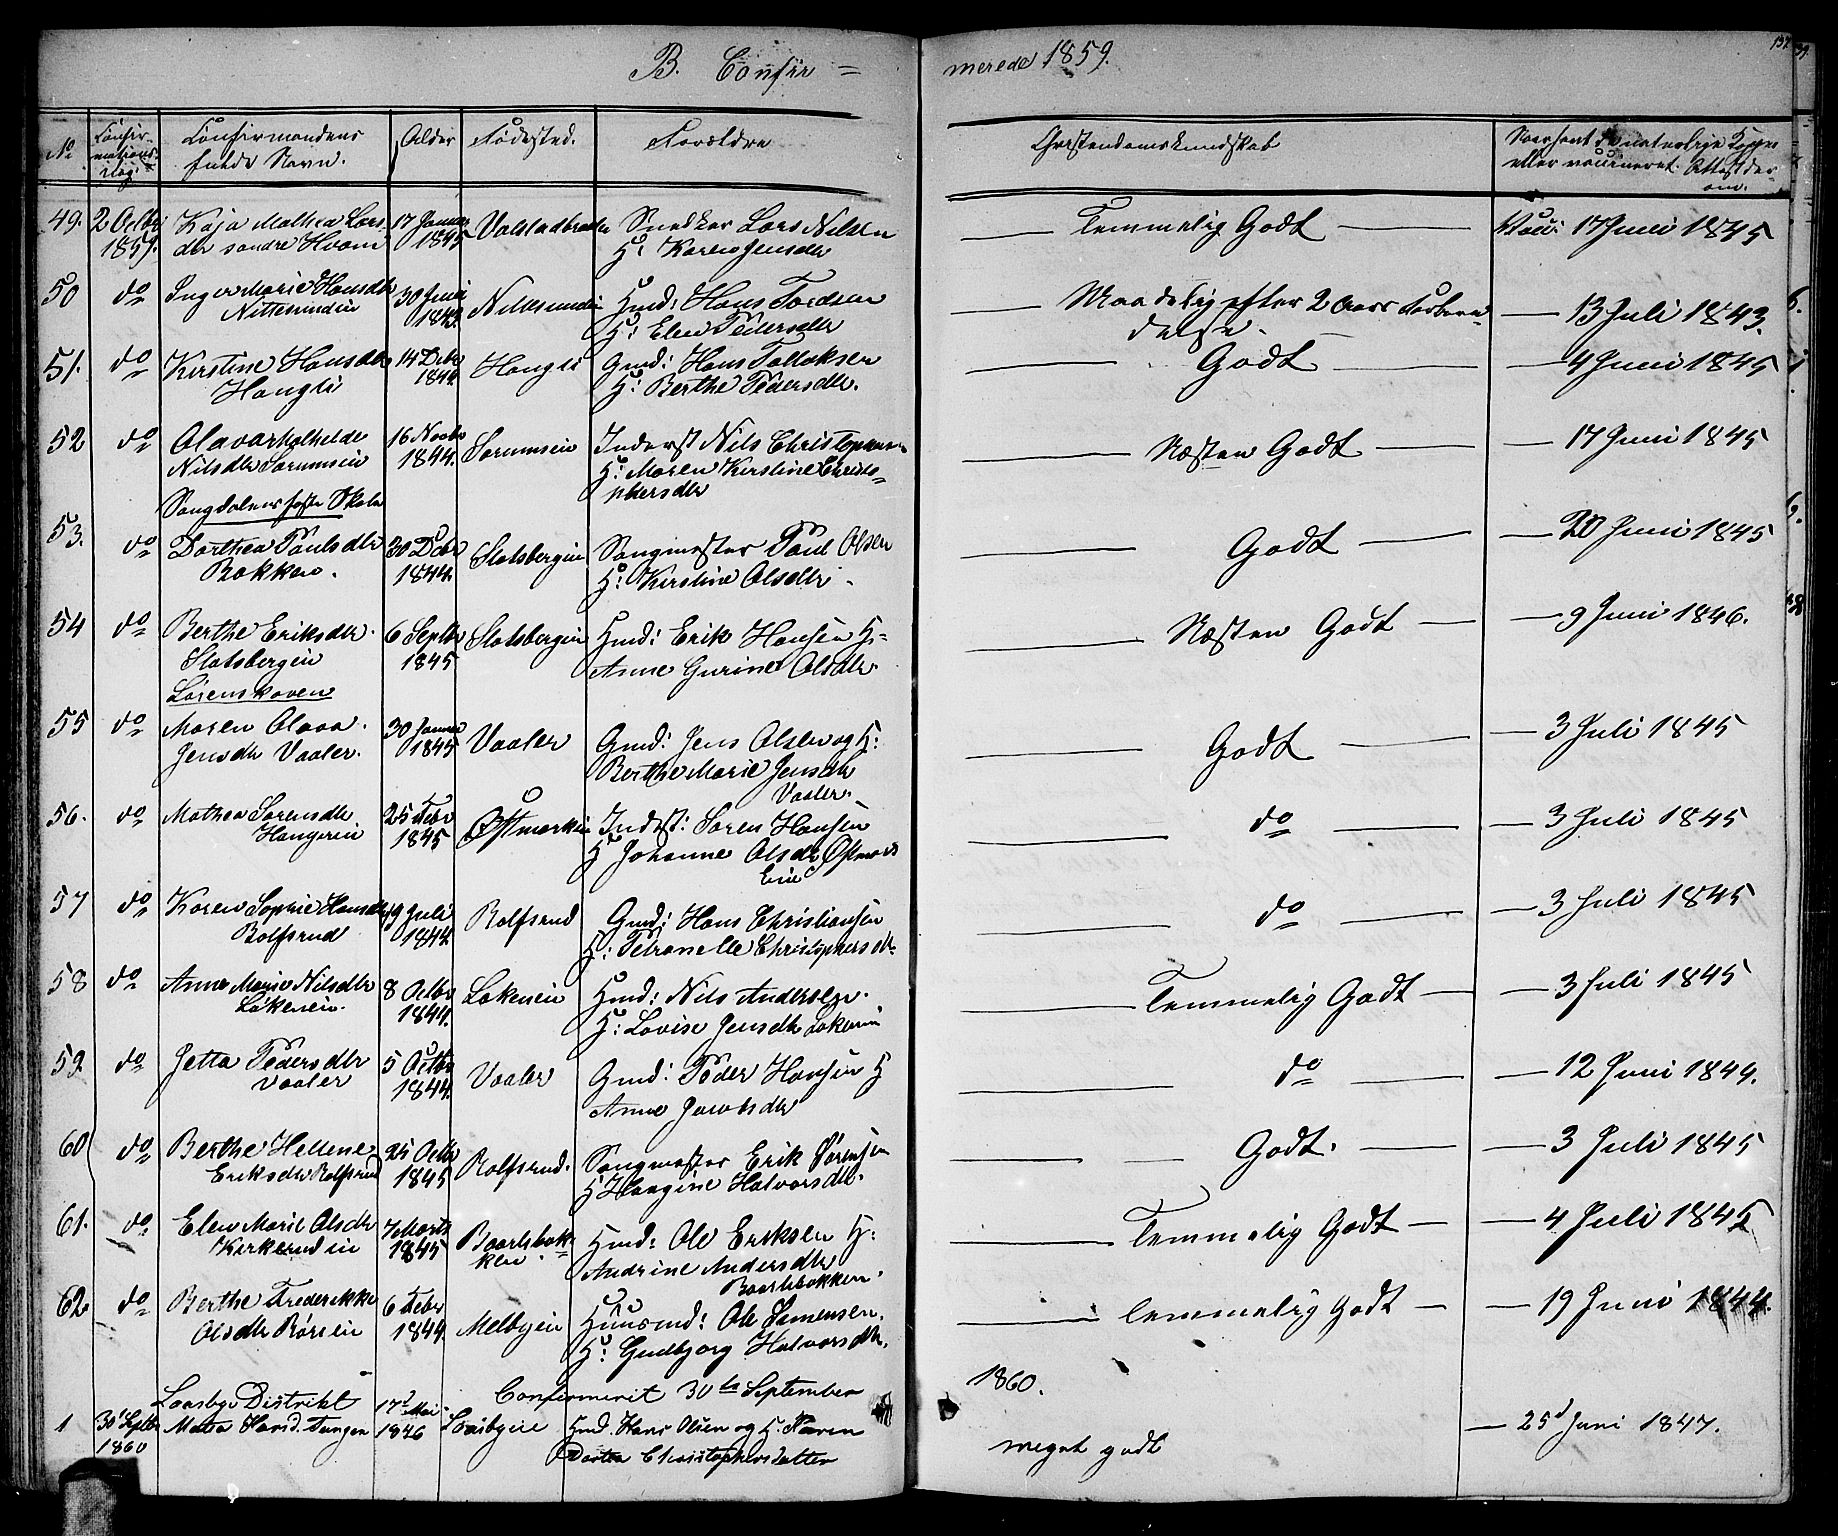 B. Confir=
merede 1859.
137
No
Confir-
mations
dag.
Confirmandens
fulde Navn.
Alder
Fødested.
Forældre
Christendomskundskab
eller vaccineret. Attest der-
om.
49. 2 Octbr 1859. Kaja Mathea Lars
dr søndre Hvam 17 Januar 1845 Snedker Lars Nilsen
H: Karen Jensdr Temmelig Godt Vacc: 17 Juni 1845
50 do Inger Marie Hansdr
Nittesundin 30 Juni Hmd: Hans Tordsen
H: Elen Pedersdr Maadelig efter 2 Aars Forbere-
delse. 13 Juli 1843.
51. do Kirstine Hansdr
Hangli 14 Debr 1844 Hangli Gmd: Hans Tollaksen
H: Berthe Pedersdr. Godt 4 Juni 1845
52 do
Nilsdr Sørumseie 16 Novbr 1844. Sørumseie Inderst Nils Christophersen
H: Maren Kirstine Christo-
phersdr Næsten Godt 17 Juni 1845
Sangdalens faste Skole
53. do Dorthea Paulsdr
Bakken. 30 Debr 1844. Slatsbergeie Sangmester Paul Olsen
H: Kirstine Olsdr. Godt 20 Juni 1845
54 do Berthe Eriksdr.
Slatsbergeie 6 Septbr 1845 Slatsbergeie Hmd: Erik Hansen H=
Anne Gurine Olsdr. Næsten Godt 9 Juni 1846.
Lørenskoven
55 do Maren Olava
Jensdr Vaaler. 30 Januar 1845 Vaaler Gmd: Jens Olsen og H:
Berthe Marie Jensdr
Vaaler. Godt 3 Juli 1845
56. do Mathea Sørensdr
Hangerein 25 Febr 1845 Østmarkeie Inderst: Søren Hansen
H Johanne Olsdr Østmark
Eie do 3 Juli 1845
57 do Karen Sophie Hansdr
Rolfsrud 19 Juli 1844. Rolfsrud Gmd: Hans Christiansen
H: Petronelle Christophersdr. do 3 Juli 1845
58 do Anne Marie Nilsdr
Løkeneie. 8 Octbr 1844. Løkeneie Hmd: Nils Andersen.
H: Lovise Jensdr Løkeneie Temmelig Godt 3 Juli 1845
59. do Jetta Pedersdr
Vaaler 5 Octbr 1844. Vaaler Gmd: Peder Hansen H
Anne Jacobsdr do 12 Juni 1849.
60 do Berthe Hellene
Eriksdr Rolfsrud 25 Octbr 1845 Rolfsrud. Sangmester Erik Sørensen
H Hangine Halvorsdr. Godt. 3 Juli 1845
61. do Elen Marie Olsdr
Kirkerudeie 7 Marts 1845 Baarlibak-
ken. Hmd: Ole Eriksen H:
Andrine Andersdr
Baarlibakken. Temmelig Godt 4 Juli 1845
62. do Berthe Frederikke
Olsdr Røreeie 6 Febr 1844 Melbyeie Huusmd: Ole Simensen.
H: Gudbjorg Halvorsdr. Temmelig Godt 19 Juni 1844.
Confirmerit 30te September
1860.
Laasbye Distrikt
1 30te Septbr 1860 Matea Hansd. Tangen 17de Mai 1846 Laasbyeie Hmd. Hans Olsen og H. Karen
Dortea Christophersdatter meget godt 25de Juni 1847.